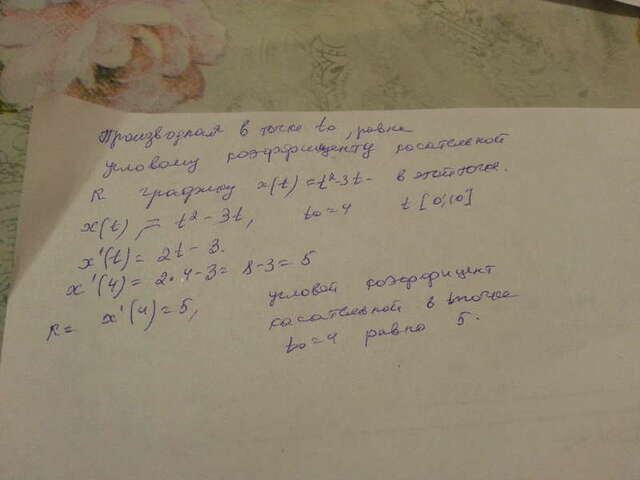 Производная в точке t₀, равна
угловому коэффициенту касательной
к графику x(t)=t²-3t- в этой точке.
x(t) = t²-3t, t₀=4 t [0;10]
x'(t)= 2t-3.
x'(4)= 2·4-3= 8-3= 5
k= x'(4)=5, угловой коэффицент
касательной в точке
t₀=4 равно 5.